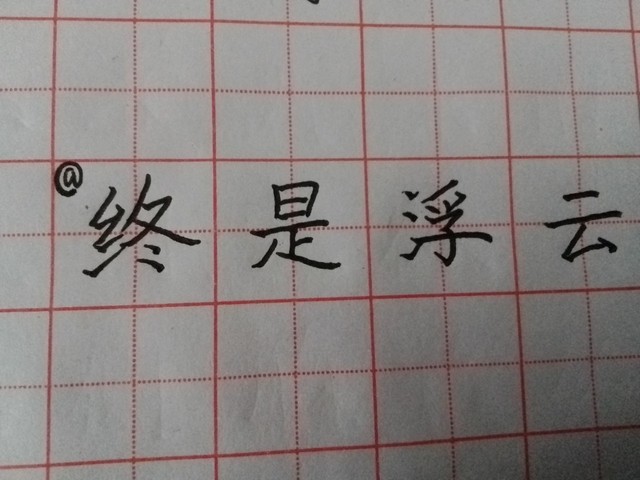 @终是浮云